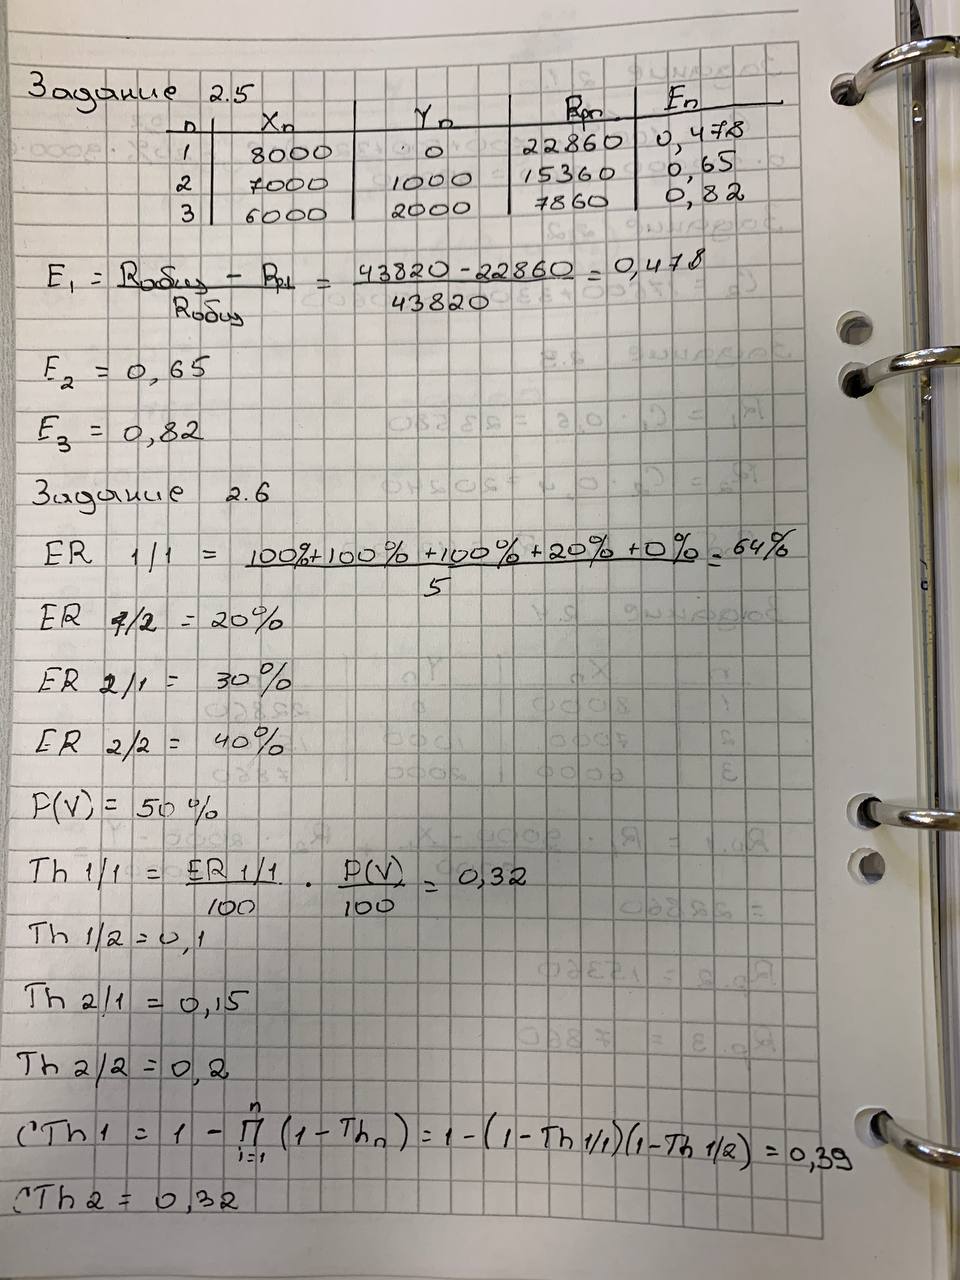 Задание 2.5
n Xn Yn Rрn En
1 8000 0 22860 0,478
2 7000 1000 15360 0,65
3 6000 2000 7860 0,82
E₁ = (Rобщ - Rр1)/Rобщ = (43820 - 22860)/43820 = 0,478
E₂ = 0,65
E₃ = 0,82
Задание 2.6
ER 1/1 = (100%+100%+100%+20%+0%)/5 = 64%
ER 1/2 = 20%
ER 2/1 = 30%
ER 2/2 = 40%
P(V) = 50%
Th 1/1 = ER 1/1 / 100 · P(V)/100 = 0,32
Th 1/2 = 0,1
Th 2/1 = 0,15
Th 2/2 = 0,2
CTh 1 = 1 - ∏ⁿᵢ₌₁ (1 - Thn) = 1 - (1 - Th 1/1)(1 - Th 1/2) = 0,39
CTh 2 = 0,32